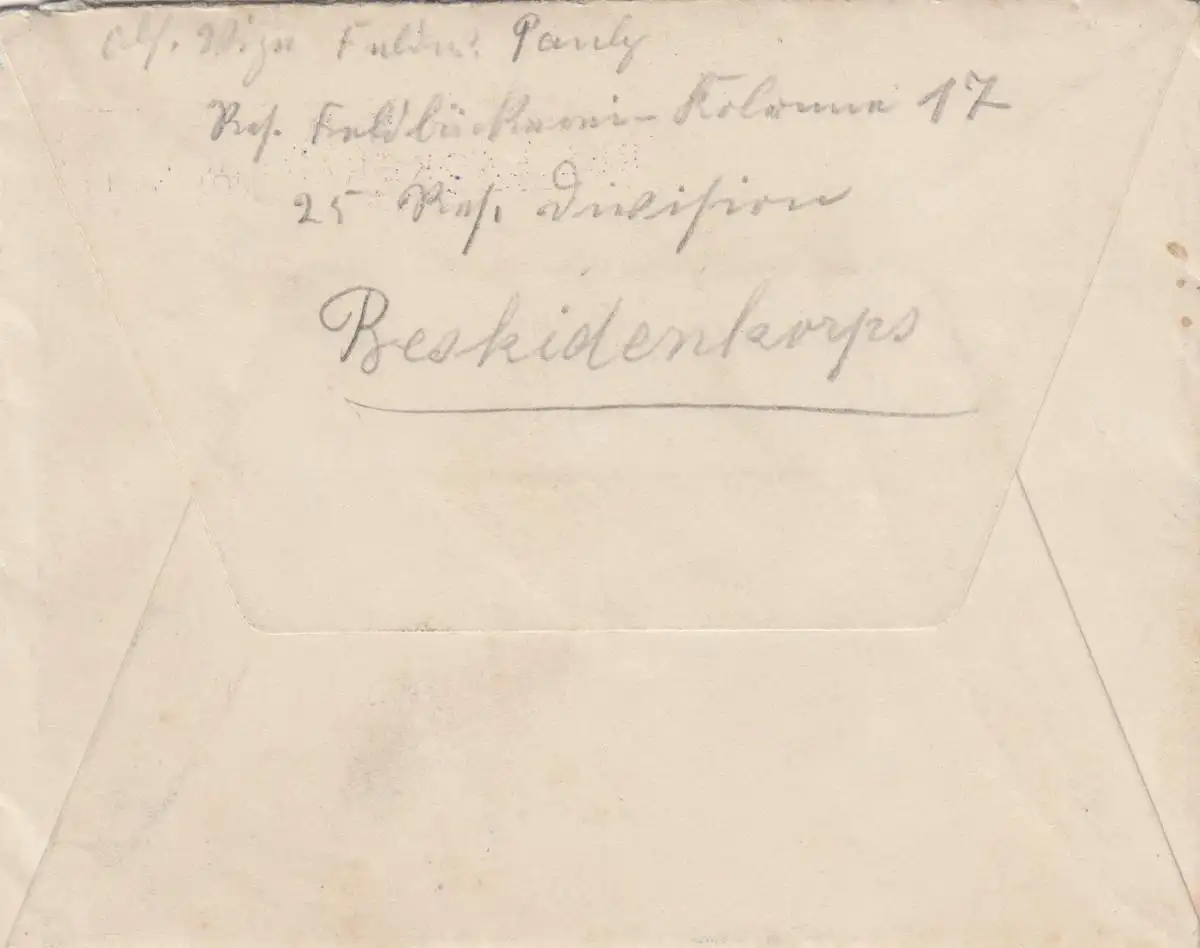 Abs. Vize Feldw. Pauly
Res. Feldbäckerei-Kolonne 17
25 Res. Division
Beskidenkorps